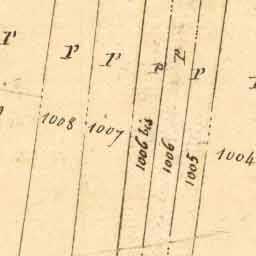 P P P P P P
1008 1007 1006 bis 1006 1005 1004